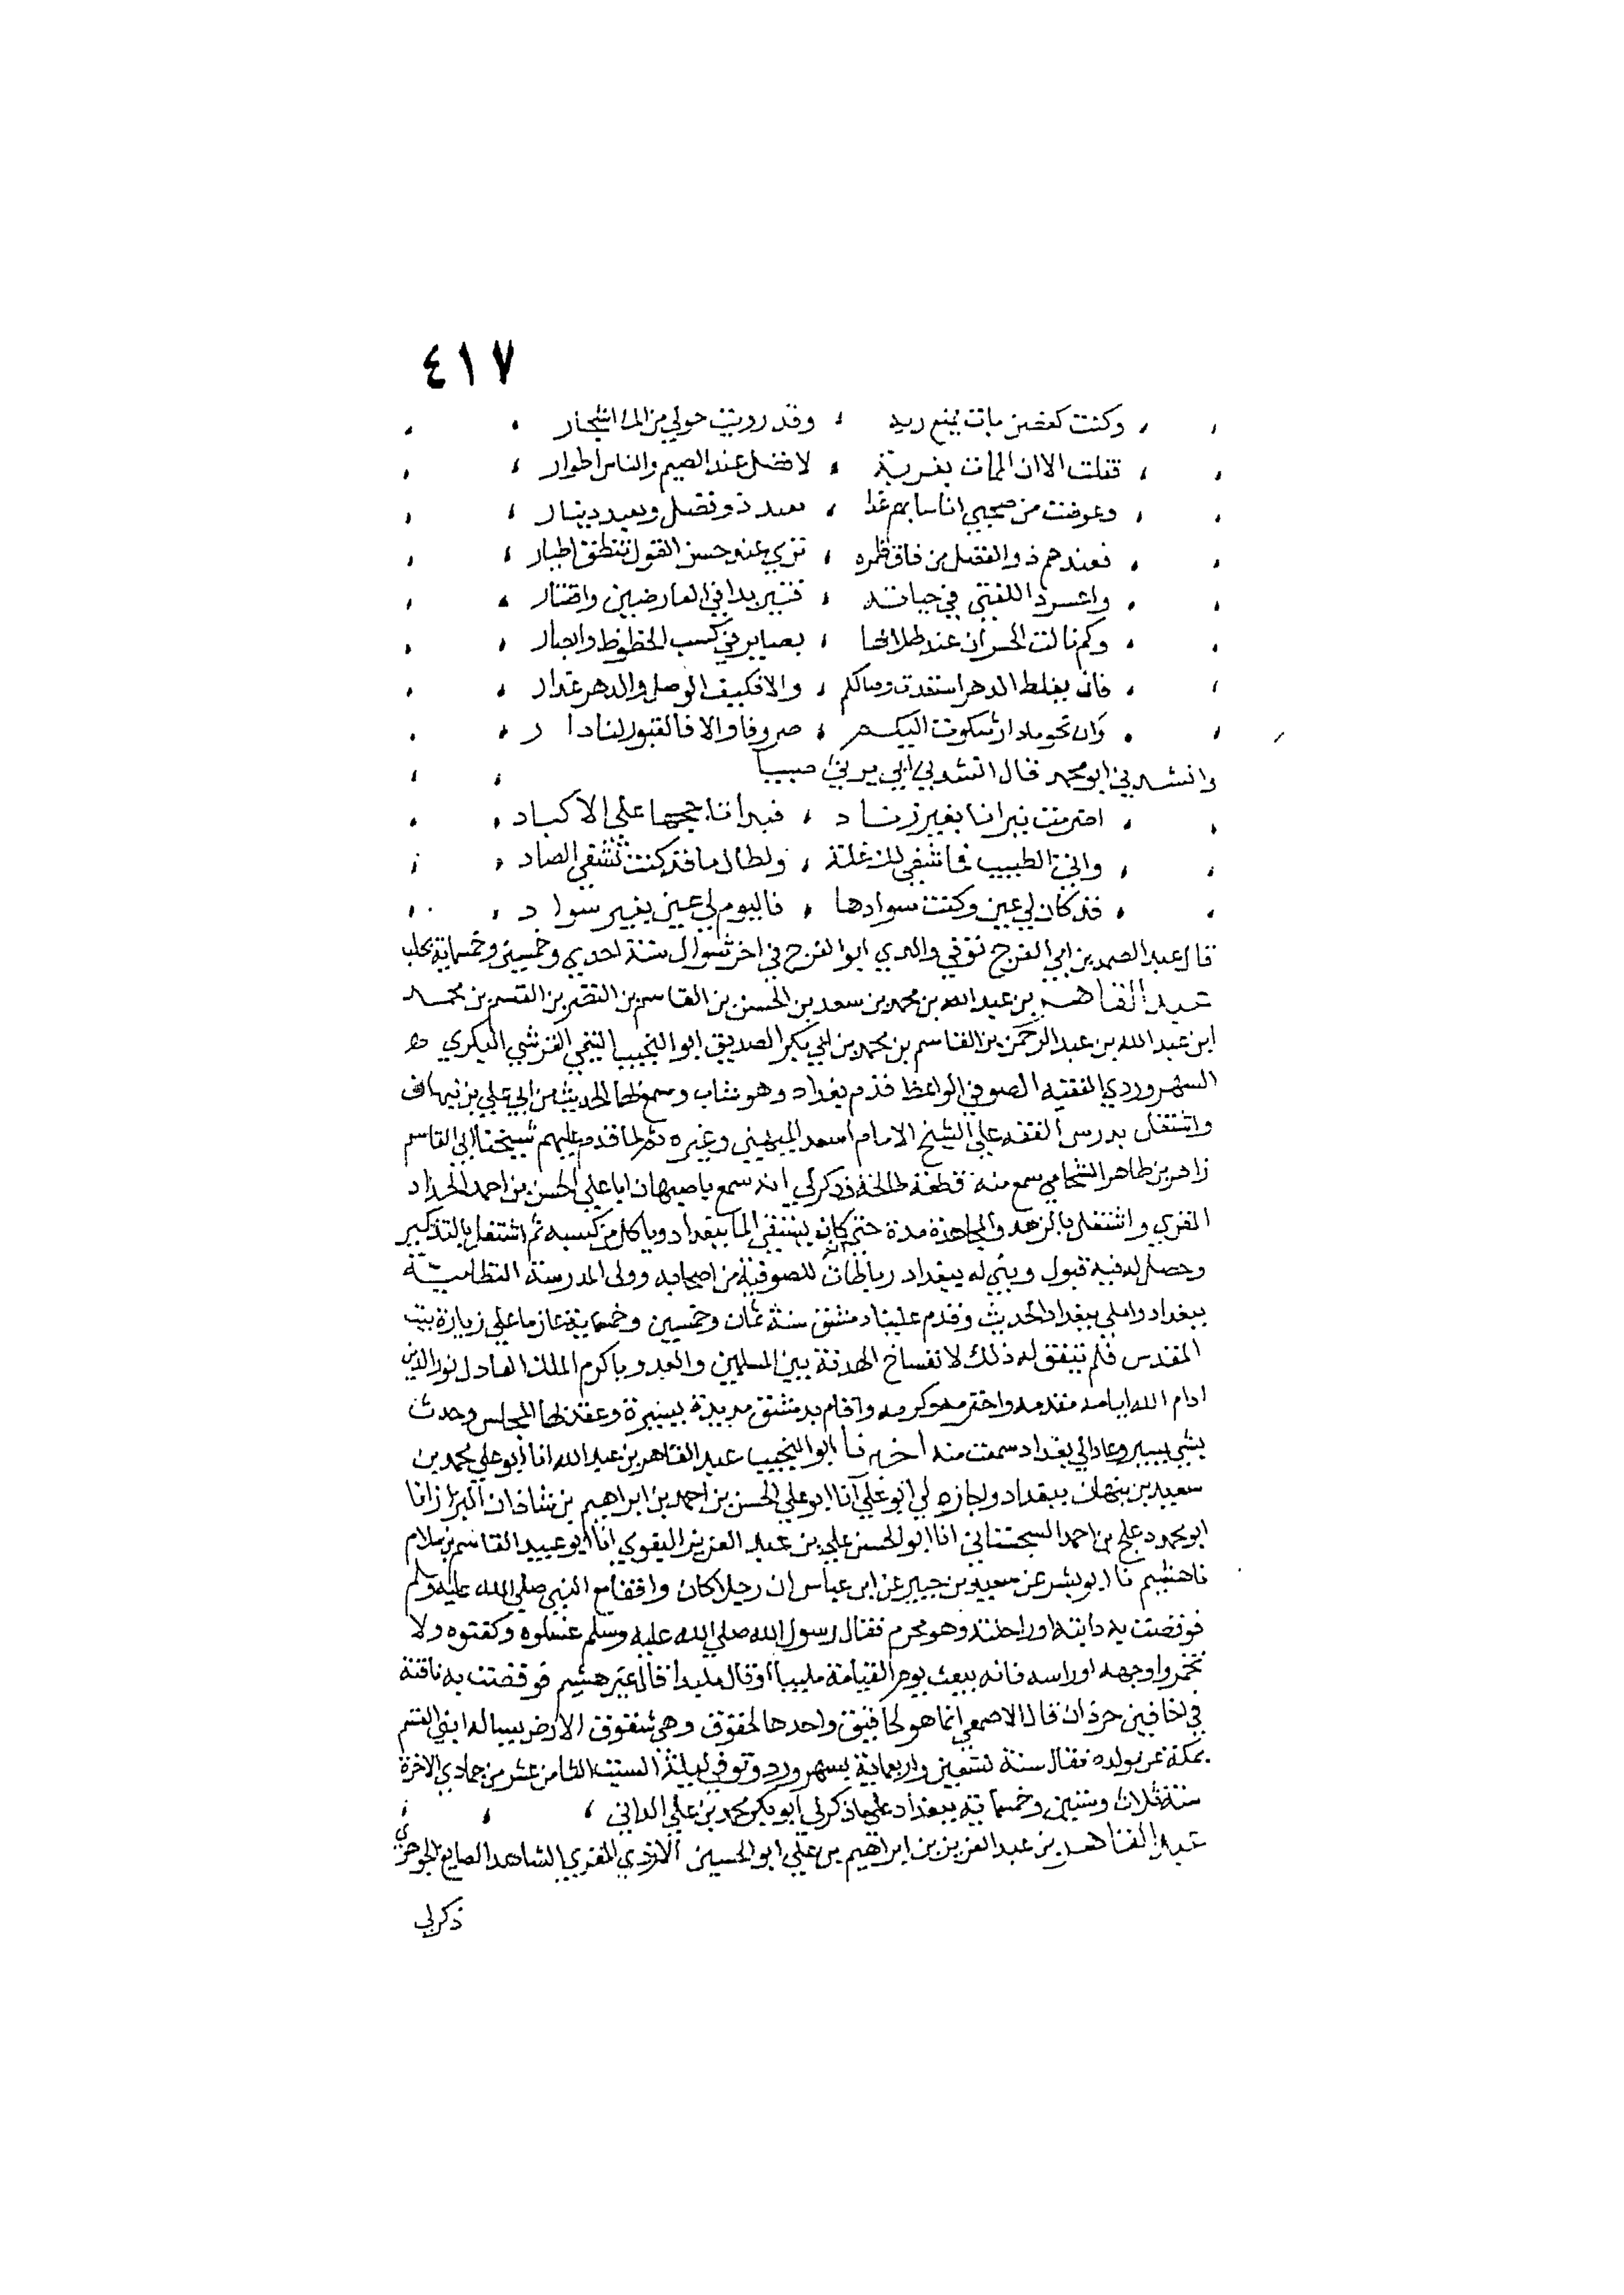 ٤١٧
وكنت كغصن بات يمنع ريه ، وقد رويت حولي من الما اشجار
فقلت الا ان الممات بغربة ، لافضل عند الضيم والناس اطوار
وعوضت من صحبي اناسا بهم غدا ، يعبد ذو فضل ويعبد دينار
فعندهم ذو الفضل من فاق طمره ، تري عنه حسن القول تنطق اطيار
واعسر ذا للفتي في حياته ، قتير بدا في العارضين واقتار
وكم نالت الحسران عند طلابها ، بصاير في كسب الحظوظ وابصار
فان يغلط الدهر استفدت وصالكم ، والا فكيف الوصل والدهر غدار
وان تحو دار شكوت اليكم ، صروفا والا فالقبور لنا دار
وانشدني ابو محمد قال انشدني ابي يرثي حبيبا
اضرمت نيرانا بغير زناد ، فبدا تاججها علي الاكباد
واتي الطبيب فما شفي لك غلة ، ولطال ما قد كنت تشفي الصاد
قد كان لي عين وكنت سوادها ، فاليوم لي عين بغير سواد
قال عبد الصمد بن ابي الفرج توفي والدي ابو الفرج في اخر شوال سنة احدي وخمسين وخمسماية بحلب
عبد القاهر بن عبد الله بن محمد بن سعد بن الحسن بن القاسم بن النضر بن القسم بن محمد
ابن عبد الله بن عبد الرحمن بن القاسم بن محمد بن ابي بكر الصديق ابو النجيب التيمي القرشي البكري
السهروردي الفقيه الصوفي الواعظ قدم بغداد وهو شاب وسمع بها الحديث من ابي علي بن نبهان
واشتغل بدرس الفقه علي الشيخ الامام اسعد الميهني وغيره ثم لما قدم عليهم شيخنا ابي القاسم
زاهر بن طاهر الشحامي سمع منه قطعة صالحة وذكر لي انه سمع باصبهان ابا علي الحسن بن احمد الحداد
المقري واشتغل بالزهد والمجاهدة مدة حتي كان يستقي الما ببغداد وياكل من كسبه ثم اشتغل بالتذكير
وحصل له فيه قبول وبني له ببغداد رباطات للصوفية من اصحابه وولي المدرسة النظامية
ببغداد واملي ببغداد الحديث وقدم علينا دمشق سنة ثمان وخمسين وخمسماية عازما علي زيارة بيت
المقدس فلم يتفق له ذلك لانفساخ الهدنة بين المسلمين والعدو باكرم الملك العادل نور الدين
ادام الله ايامه مقدمه واحترمه وكرمه واقام بدمشق مديدة يسيرة وعقد بها المجلس وحدث
بشي يسير وعاد الي بغداد سمعت منه اخبرنا ابو النجيب عبد القاهر بن عبد الله انا ابو علي محمد بن
سعيد بن نبهان ببغداد واجازه لي ابو علي انا ابو علي الحسن بن احمد بن ابراهيم بن شاذان البزاز انا
ابو محمد دعلج بن احمد السجستاني انا ابو الحسن علي بن عبد العزيز البغوي انا ابو عبيد القاسم بن سلام
نا هشيم نا ابو بشر عن سعيد بن جبير عن ابن عباس ان رجلا كان واقفا مع النبي صلي الله عليه وسلم
فوقصت به دابته او راحلته وهو محرم فقال رسول الله صلي الله عليه وسلم غسلوه وكفنوه ولا
تخمروا وجهه او راسه فانه يبعث يوم القيامة ملبيا او قال ملبدا قال غير هشيم فوقصت به ناقته
في اخافيق جرذان قال الاصمعي انما هو لخافيق واحدها لخقوق وهي شقوق الارض يساله ابني القسم
بمكة عن مولده فقال سنة تسعين واربعماية بسهرورد وتوفي ليلة السبت الثامن عشر من جمادي الاخرة
سنة ثلاث وستين وخمسماية ببغداد علي ما ذكر لي ابو بكر محمد بن علي الداني ،
عبد القاهر بن عبد العزيز بن ابراهيم بن علي ابو الحسين الازدي المقري الشاهد الصايغ الجوهري
ذكر لي